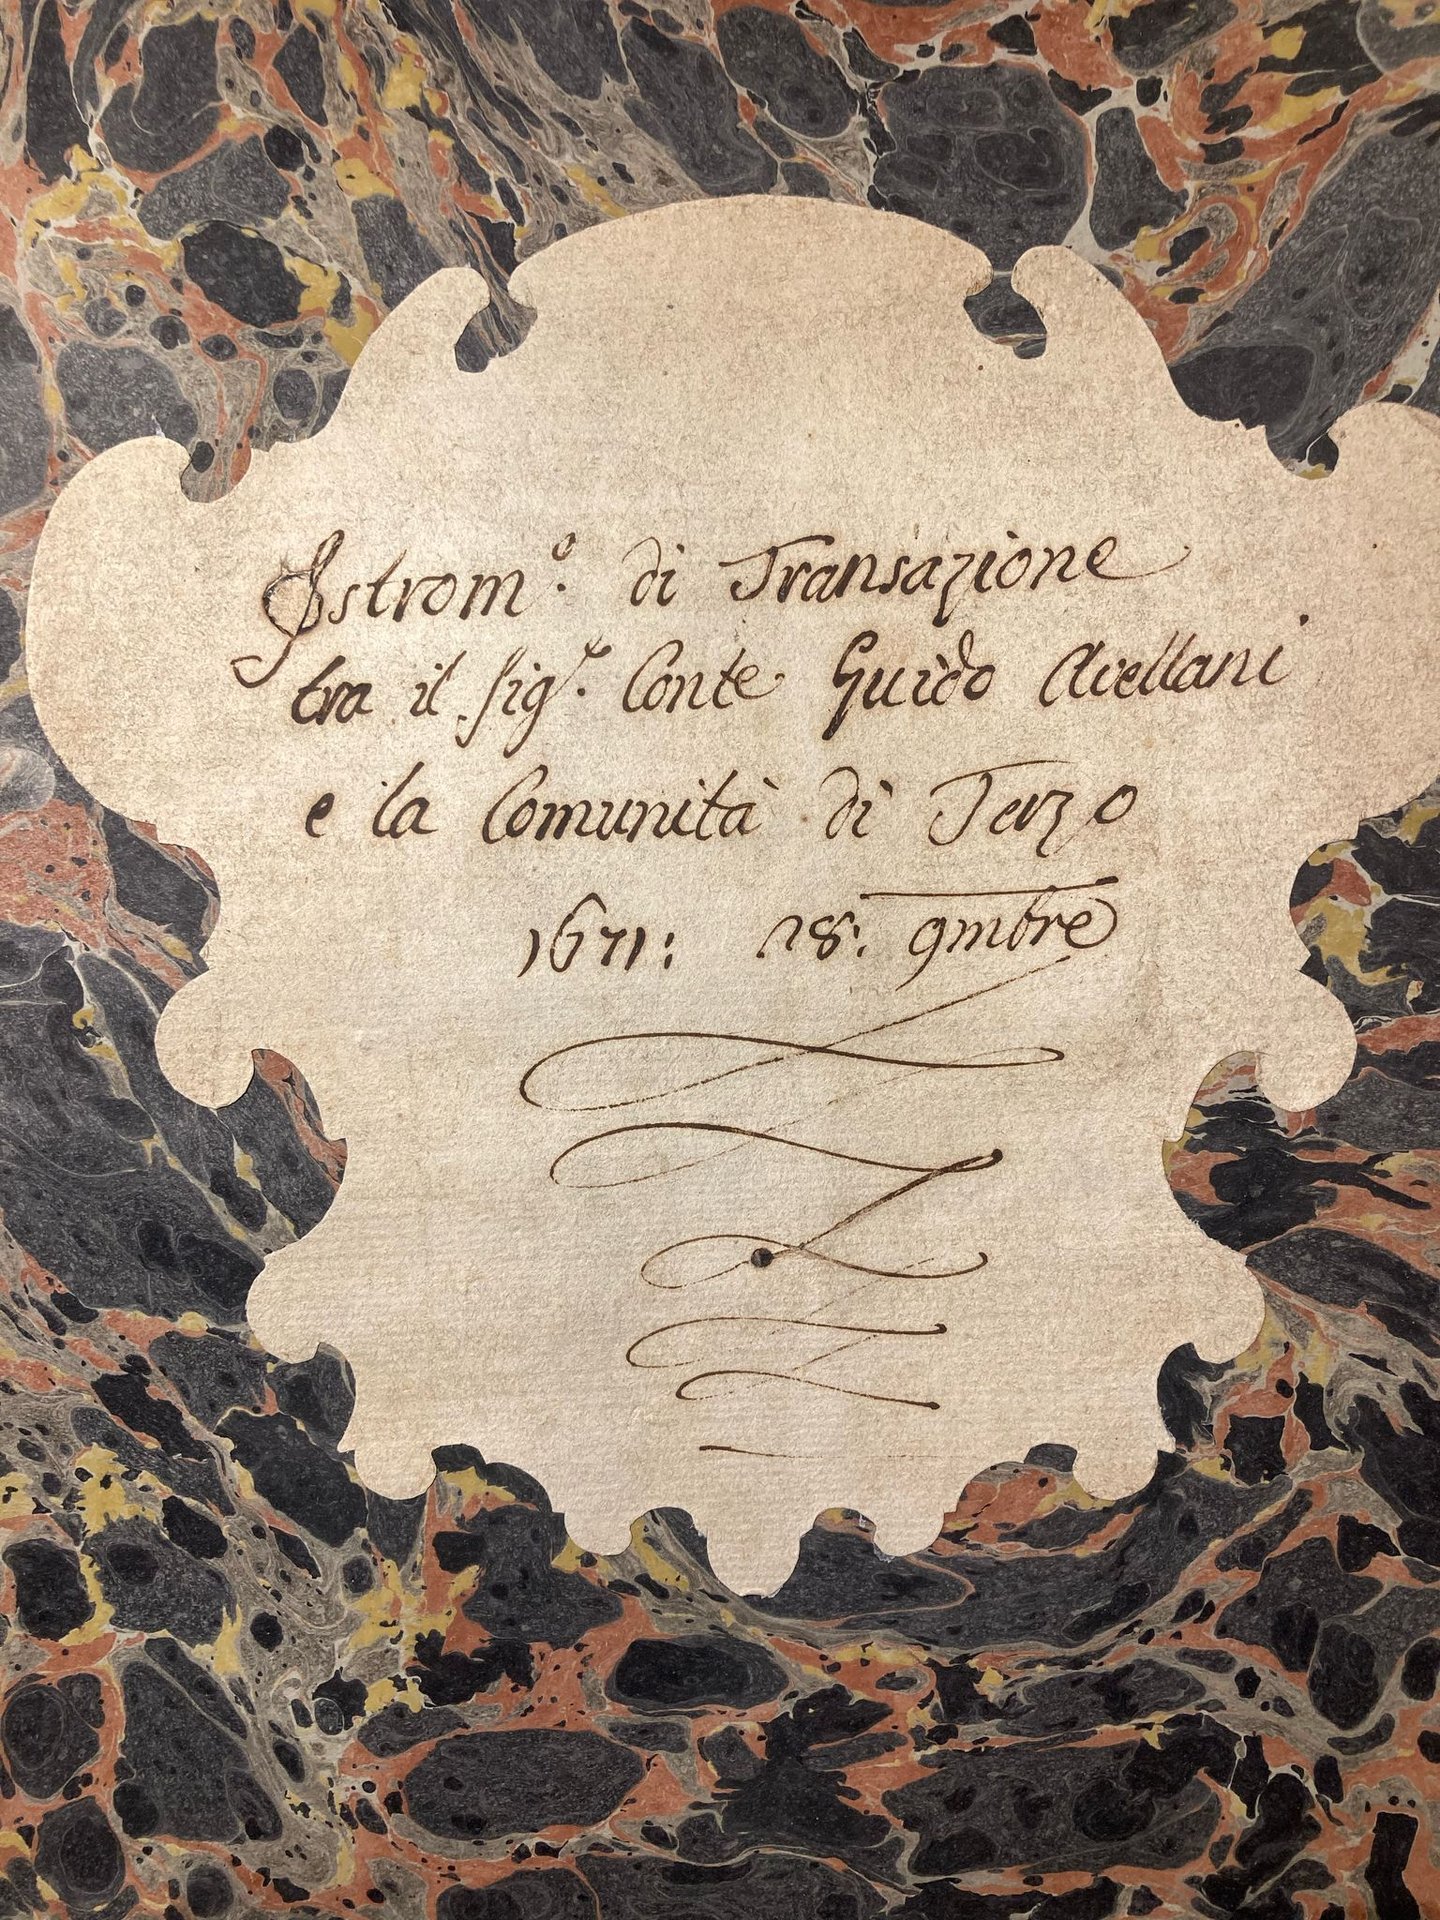 Istrom.º di Transazione
tra il Sig.r Conte Guido Avellani
e la Comunità di Terzo
1671: 28: 9mbre